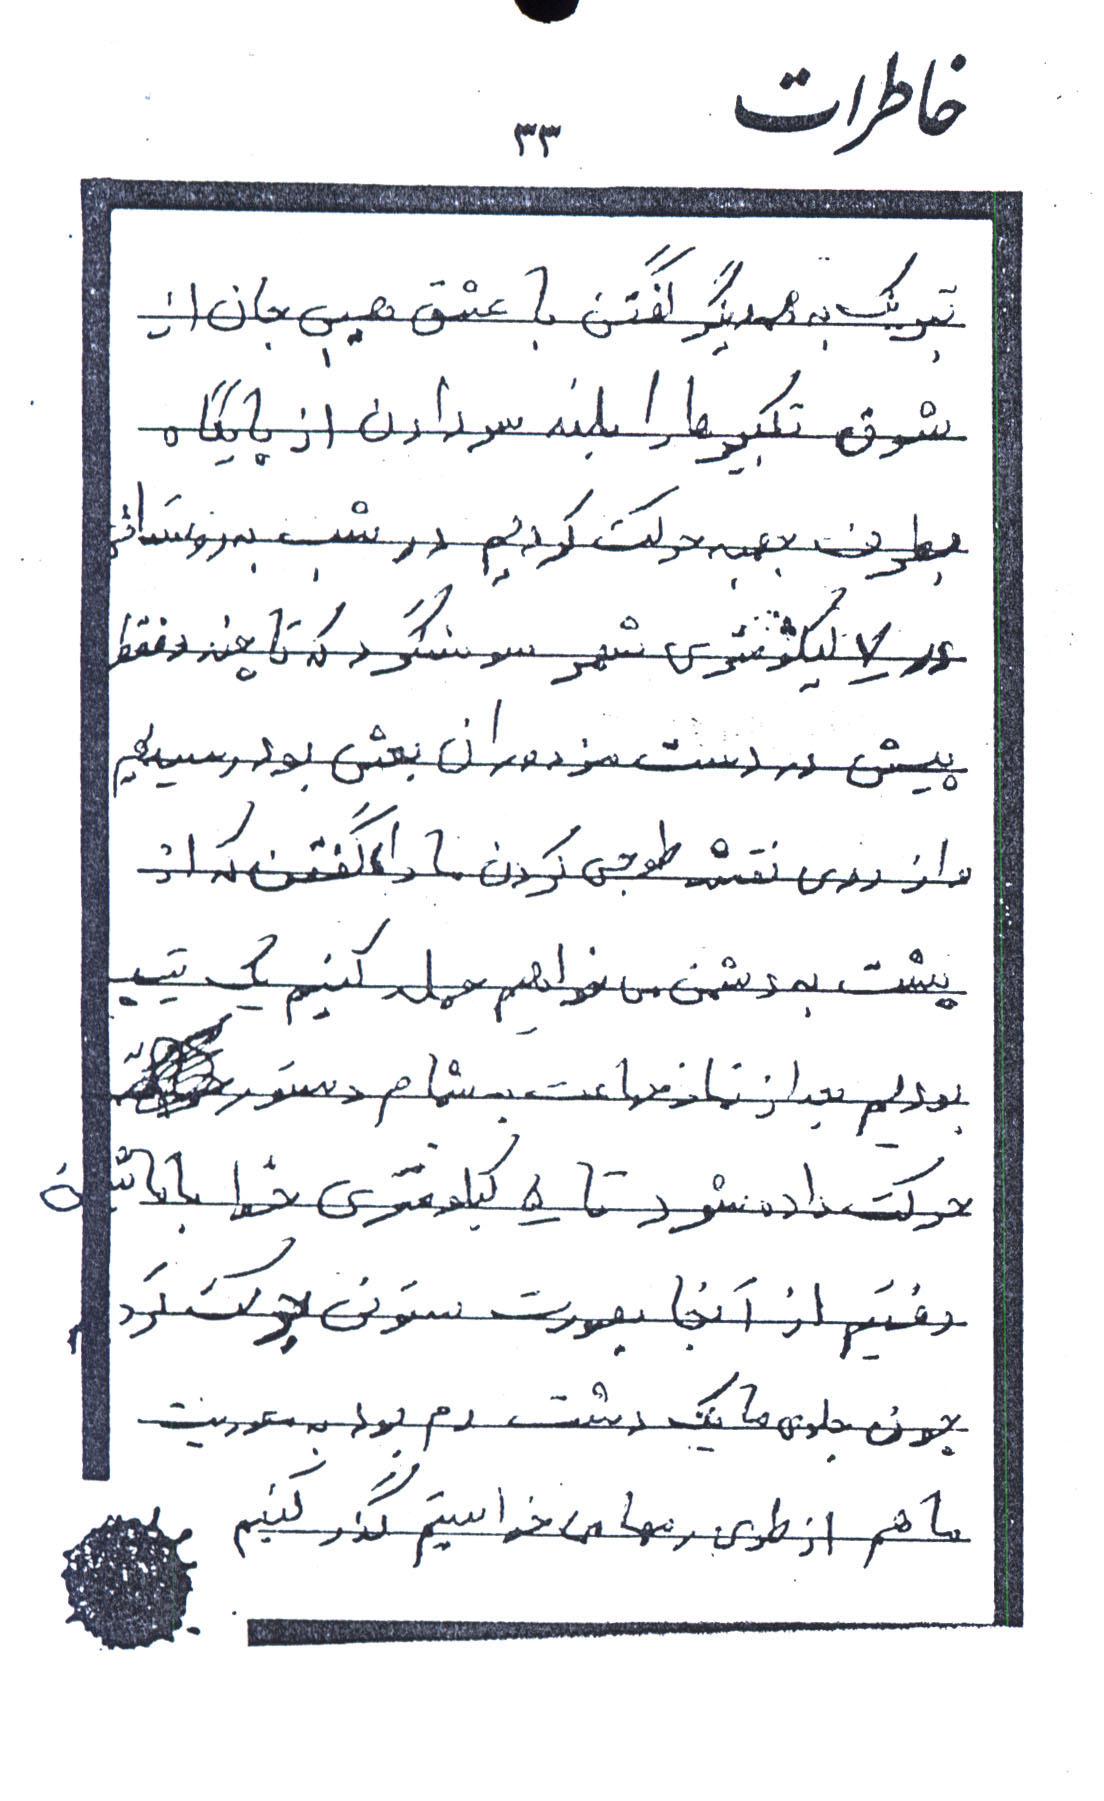 خاطرات
۳۳
تبریک به همدیگر گفتن با عشق هیبی جان از
شوق تکبیرها را بلند سر دادن از پایگاه
بطرف جبهه حرکت کردیم در شب به روستائی
در ۷ لیکومتری شهر سوسنگرد که تا چند دفقط
پیش در دست مزدوران بعثی بود رسیدیم
و از روی نقشه طوجی کردن ما را گفتن که از
پشت به دشمن می خواهیم حمله کنیم یک تیپ
بودیم بعد از نماز جماعت به شام دستور
حرکت داده شود تا ۵ کیلومتری خط با ماشین
رفتیم از آنجا بصورت ستونی حرکت کردیم
چون جلوی ما یک دشت رم بود به معوریت
ما هم از طوی رمها می خواستیم گذر کنیم